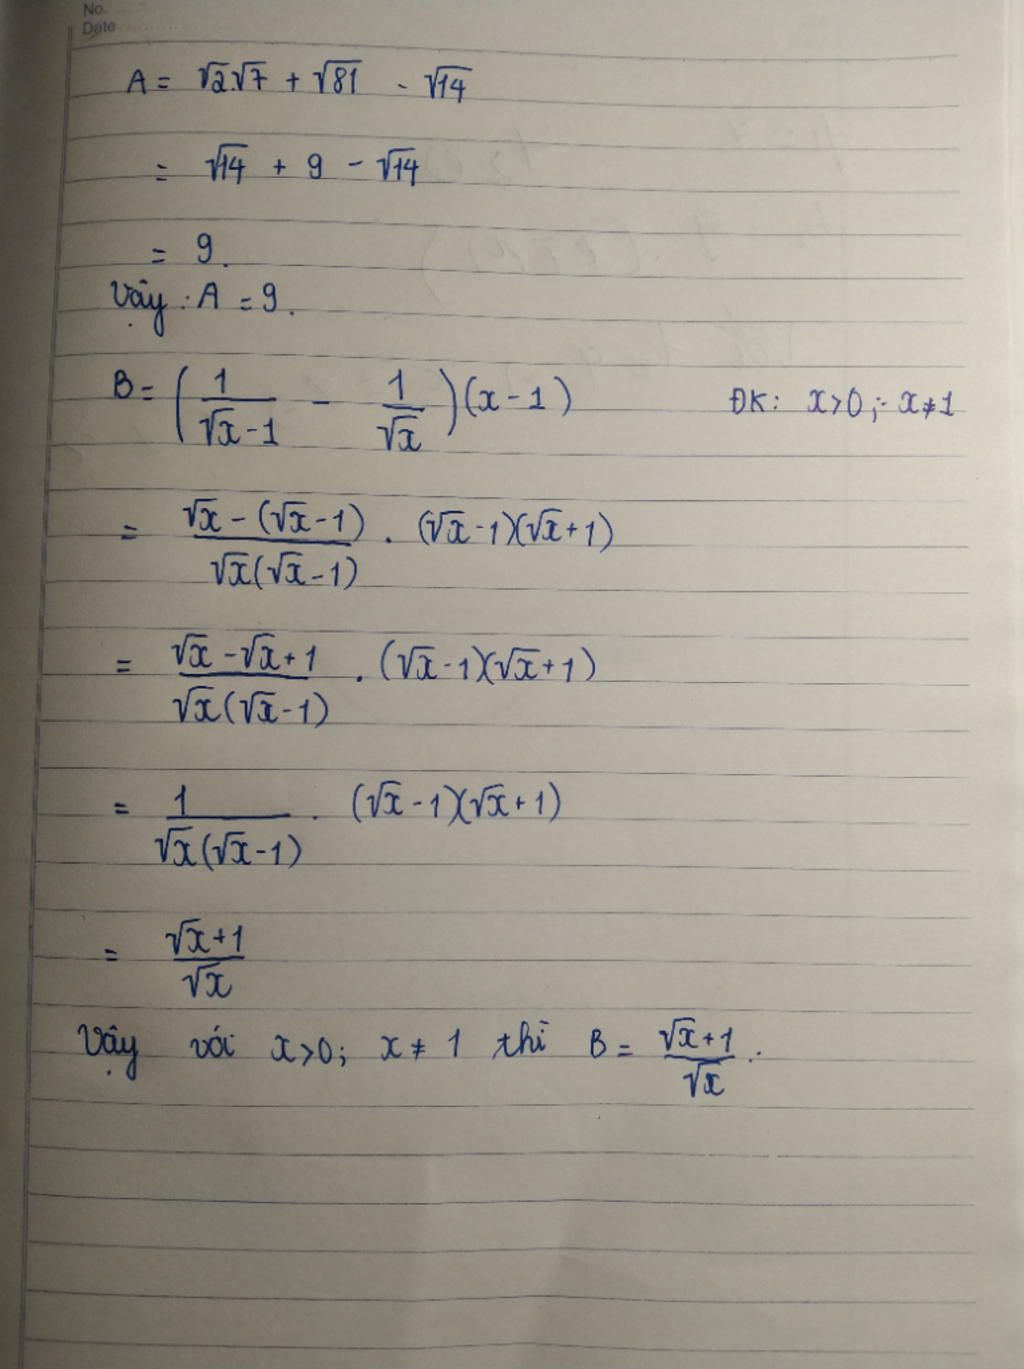 No.
Date
A = √2.√7 + √81 - √14
= √14 + 9 - √14
= 9.
Vậy : A = 9.
B = (1/(√x-1) - 1/√x)(x-1) ĐK: x>0; x≠1
= (√x-(√x-1))/(√x(√x-1)) . (√x-1)(√x+1)
= (√x-√x+1)/(√x(√x-1)) . (√x-1)(√x+1)
= 1/(√x(√x-1)) . (√x-1)(√x+1)
= (√x+1)/√x
Vậy với x>0; x≠1 thì B = (√x+1)/√x.